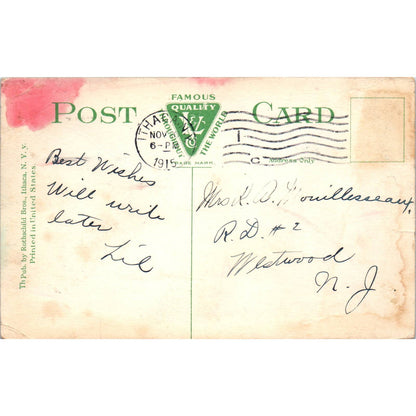 POST CARD
FAMOUS
QUALITY
THROUGHOUT
THE WORLD
TRADE MARK
ITHACA N.Y.
NOV
6-PM
1915
1
Address Only
Best Wishes
Will write
later
Lil
Mrs R. D. Mouillesseaux,
R.D. #2
Westwood
N. J
Pub. by Rothschild Bros., Ithaca, N. Y.
Printed in United States.